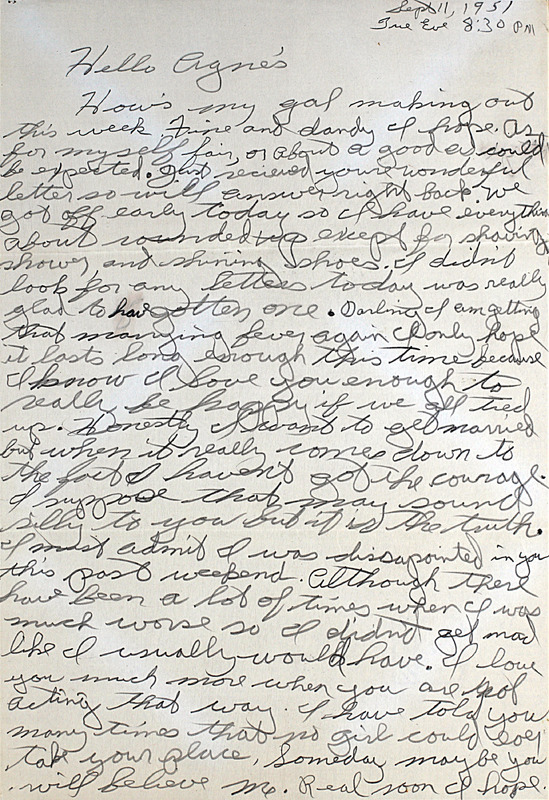 Sept 11, 1951
Tue Eve 8:30 PM
Hello Agnes
How's my gal making out
this week. Fine and dandy I hope. As
for my self fair, or about a good as could
be expected. Just recieved youre wonderful
letter so will answer right back. We
got off early today so I have everything
about rounded up except for shaving,
shower, and shining shoes. I didn't
look for any letters today was really
glad to have gotten one. Darling I am getting
that marrying fever again I only hope
it lasts long enough this time because
I know I love you enough to
really be happy if we get tied
up. Honestly I want to get married
but when it really comes down to
the fact I haven't got the courage.
I suppose that may sound
silly to you but it is the truth.
I must admit I was dissapointed in you
this past weekend. Although there
have been a lot of times when I was
much worse so I didn't get mad
like I usually would have. I love
you much more when you are not
acting that way. I have told you
many times that no girl could ever
take your place, Someday maybe you
will believe me. Real soon I hope.